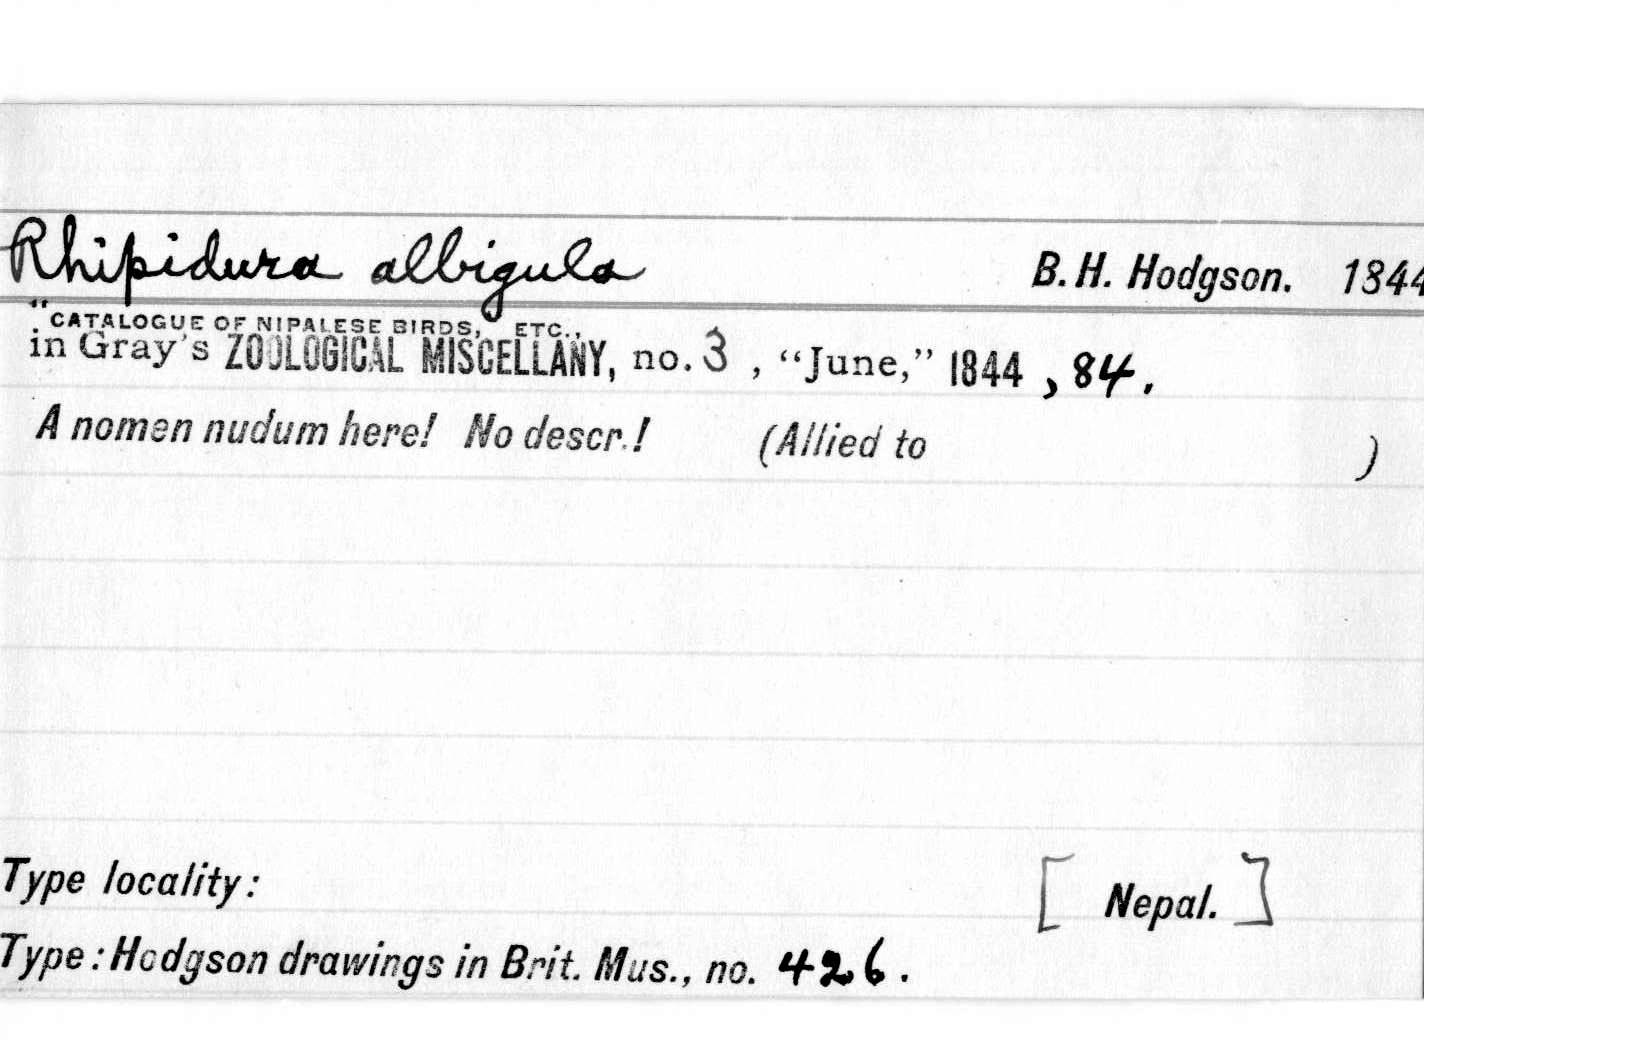 Rhipidura albigula B. H. Hodgson. 1844
"CATALOGUE OF NIPALESE BIRDS, ETC.,
in Gray's ZOOLOGICAL MISCELLANY, no. 3, “June,” 1844, 84.
A nomen nudum here! No descr.! (Allied to )
Type locality: [Nepal.]
Type: Hodgson drawings in Brit. Mus., no. 426.